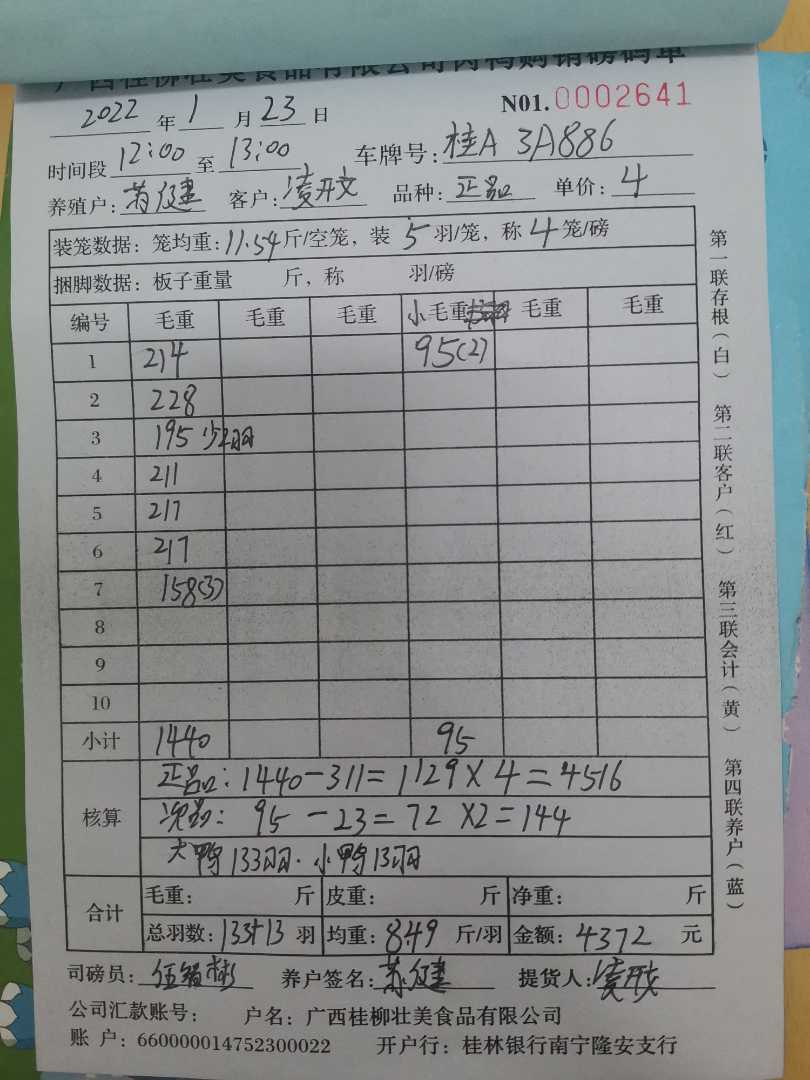 广西桂柳壮美食品有限公司肉鸭购销磅码单
2022 年 1 月 23 日 N01. 0002641
时间段 12:00 至 13:00 车牌号: 桂A 3A886
养殖户: 苏健 客户: 凌开文 品种: 正品 单价: 4
装笼数据: 笼均重: 11.54 斤/空笼, 装 5 羽/笼, 称 4 笼/磅
捆脚数据: 板子重量 斤, 称 羽/磅
编号 毛重 毛重 毛重 小毛重 毛重 毛重
1 214 95(2)
2 228
3 195 少2羽
4 211
5 217
6 217
7 158(3)
8
9
10
小计 1440 95
核算
正品: 1440-311=1129×4=4516
次品: 95-23=72×2=144
大鸭133羽. 小鸭13羽
合计
毛重: 斤 皮重: 斤 净重: 斤
总羽数: 133+13 羽 均重: 8.49 斤/羽 金额: 4372 元
司磅员: 养户签名: 苏健 提货人: 凌开文
公司汇款账号: 户名: 广西桂柳壮美食品有限公司
账 户: 660000014752300022 开户行: 桂林银行南宁隆安支行
第一联存根(白) 第二联客户(红) 第三联会计(黄) 第四联养户(蓝)